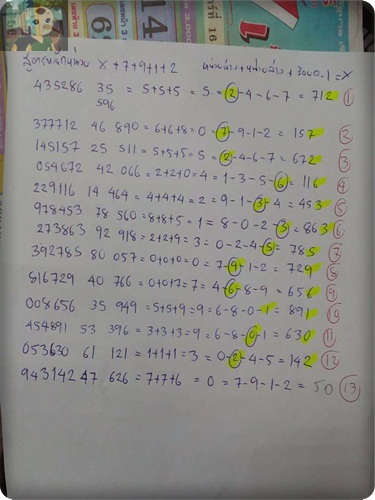 สูตรหลักหน่วย x+7+9+1+2 หน่วยล่าง+หน่วยล่าง+3000.1=x
435286 35 = 5+5+5 = 5 = 2-4-6-7 = 712 1
596
377712 46 890 = 6+6+8 = 0 = 7-9-1-2 = 157 2
145157 25 511 = 5+5+5 = 5 = 2-4-6-7 = 672 3
054672 42 066 = 2+2+0 = 4 = 1-3-5-6 = 116 4
229116 14 464 = 4+4+4 = 2 = 9-1-3-4 = 453 5
978453 78 560 = 8+8+5 = 1 = 8-0-2-3 = 863 6
273863 92 918 = 2+2+9 = 3 = 0-2-4-5 = 785 7
392785 80 057 = 0+0+0 = 0 = 7-9-1-2 = 729 8
816729 40 766 = 0+0+7 = 7 = 4-6-8-9 = 656 9
008656 35 949 = 5+5+9 = 9 = 6-8-0-1 = 891 10
454891 53 396 = 3+3+3 = 9 = 6-8-0-1 = 630 11
053630 61 121 = 1+1+1 = 3 = 0-2-4-5 = 142 12
943142 47 626 = 7+7+6 = 0 = 7-9-1-2 = 50 13